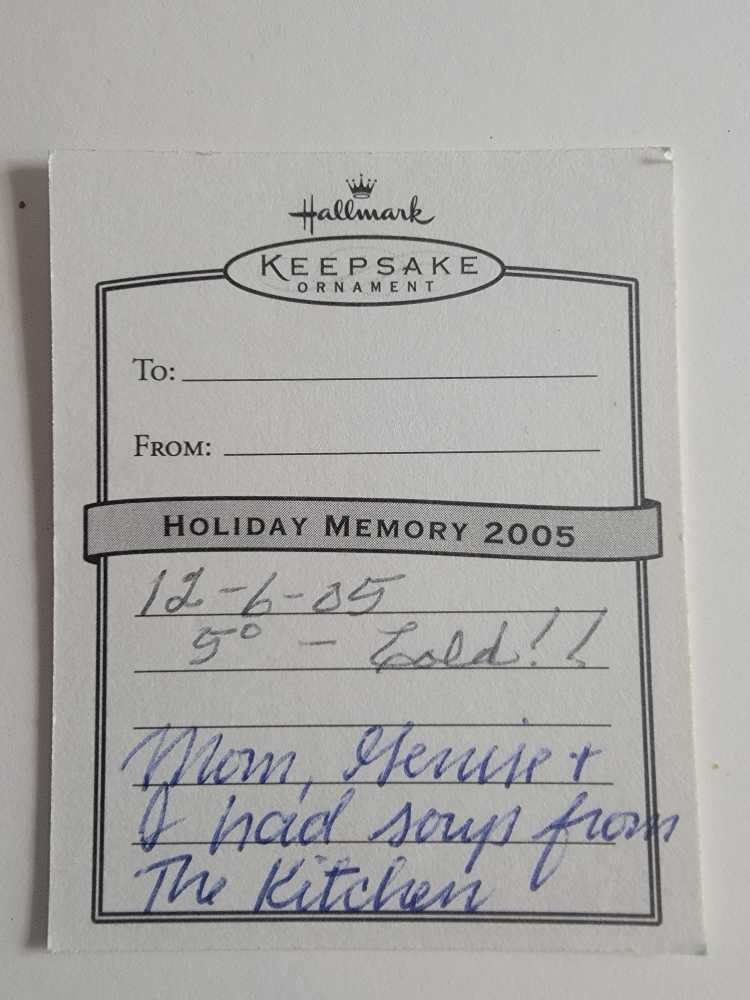 Hallmark
KEEPSAKE
ORNAMENT
TO:
FROM:
HOLIDAY MEMORY 2005
12-6-05
5° - Cold!!
Mom, +
I had soup from
The Kitchen